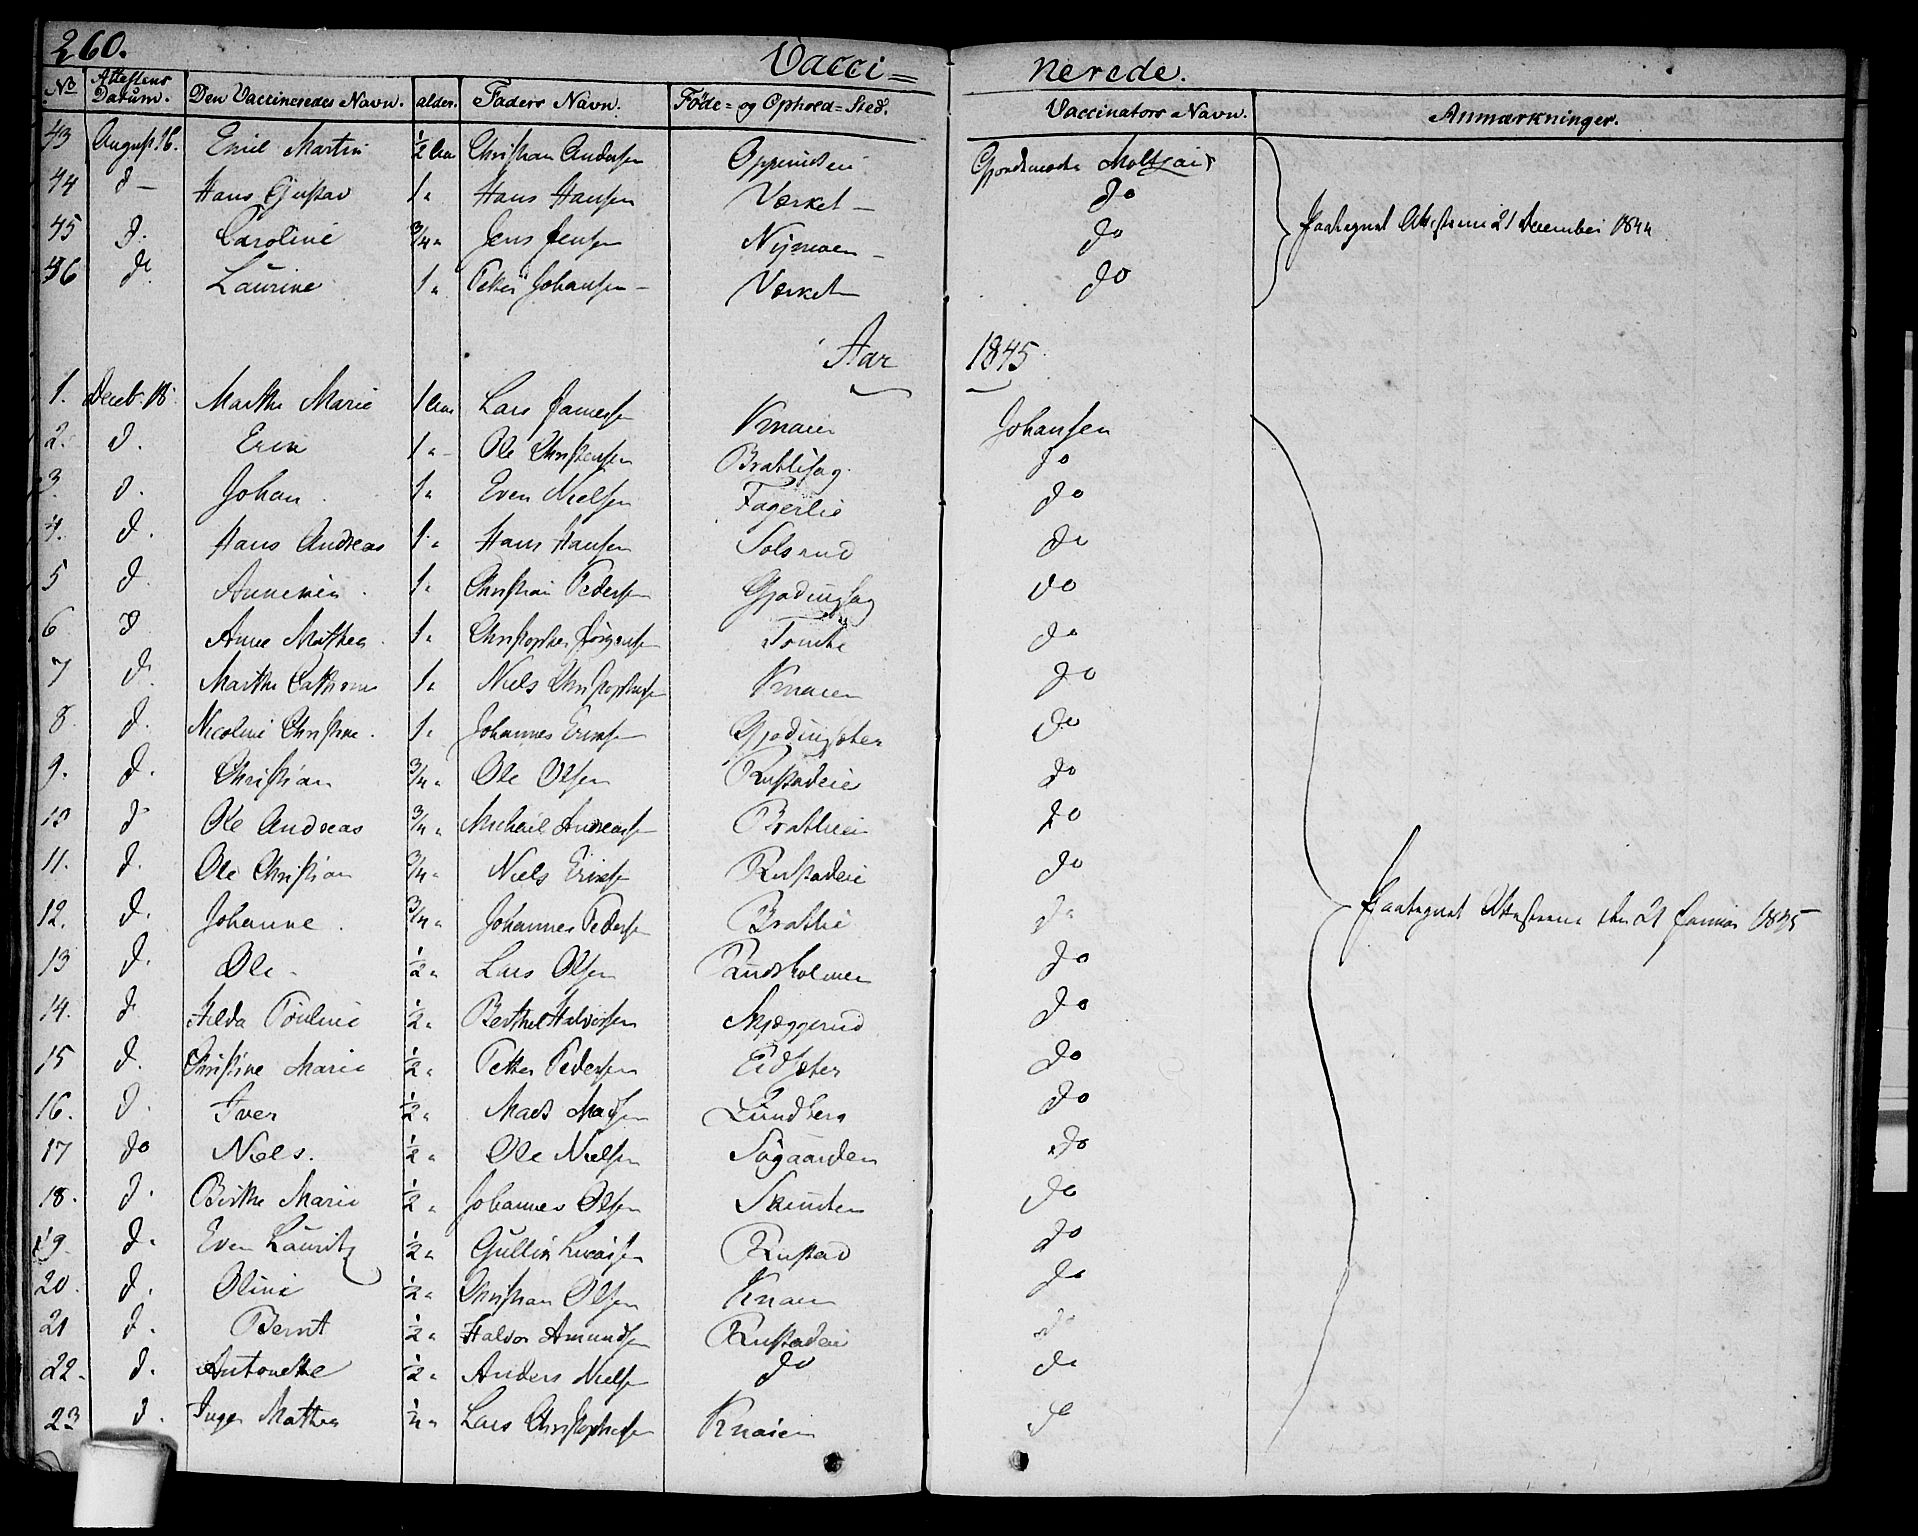 260. Vacci= nerede.
No Attestens Datum. Den Vaccineredes Navn. alder. Faders Navn. Föde= og Ophold=Sted. Vaccinators Navn. Anmærkninger.
43 August 16. Emil Martin 1/2 Aar Christian Andersen
44 d - Hans Gustav 1 " Hans Hansen Værket - do
45 d. Caroline 3/4 " Jens Jensen Nÿmoen - do Paategnet Attesterne 21 December 1844
46 d. Laurine 1 " Petter Johansen - Værket do
Aar 1845.
1. Decbr 18. Marthe Marie 1 Aar Lars Knaien Johansen
2. d. Erik 1 " Ole Christensen do
3. d. Johan 1 " Even Nielsen Fagerlie do
4. d. Hans Andreas 1 " Hans Hansen Solsrud do
5 d. 1 " Christian Pedersen do
6 d Anne Mathea 1 " Christopher Jörgensen Tomte do
7 d. Marthe Cathrine 1 " Niels Christophersen Knaien do
8. d. Nicoline Christine 1 " Johannes Eriksen do
9. d. Christian 3/4 " Ole Olsen Rustadeie do
10 d Ole Andreas 3/4 " Michael Andreassen do
11. d. Ole Christian 3/4 " Niels Eriksen Rustadeie do
12. d. Johanne 3/4 " Johannes Pedersen Brathie do Paategnet Attesterne den 21 Januar 1845
13 d. Ole 1/2 " Lars Olsen Rudsholmen do
14. d. Hilda Pouline 1/2 " Berthel Halvorsen Skjæggerud do
15 d. Christine Marie 1/2 " Petter Pedersen Eidsæter do
16. d. Iver 1/2 " Mads Madsen Lundberg do
17 do Niels. 1/2 " Ole Nielsen Sögaarden do
18. d. Birthe Marie 1/2 " Johannes Olsen do
19. d. Even Lauritz 1/2 " Rustad do
20. d. Oline 1/2 " Christian Olsen Knaien do
21 d. Bernt 1/2 " Halvor Amundsen Rustadeie do
22. d. Antonette 1/2 " Anders Nielsen do do
23 d. Inger Mathea 1/2 " Lars Christophersen Knaien do